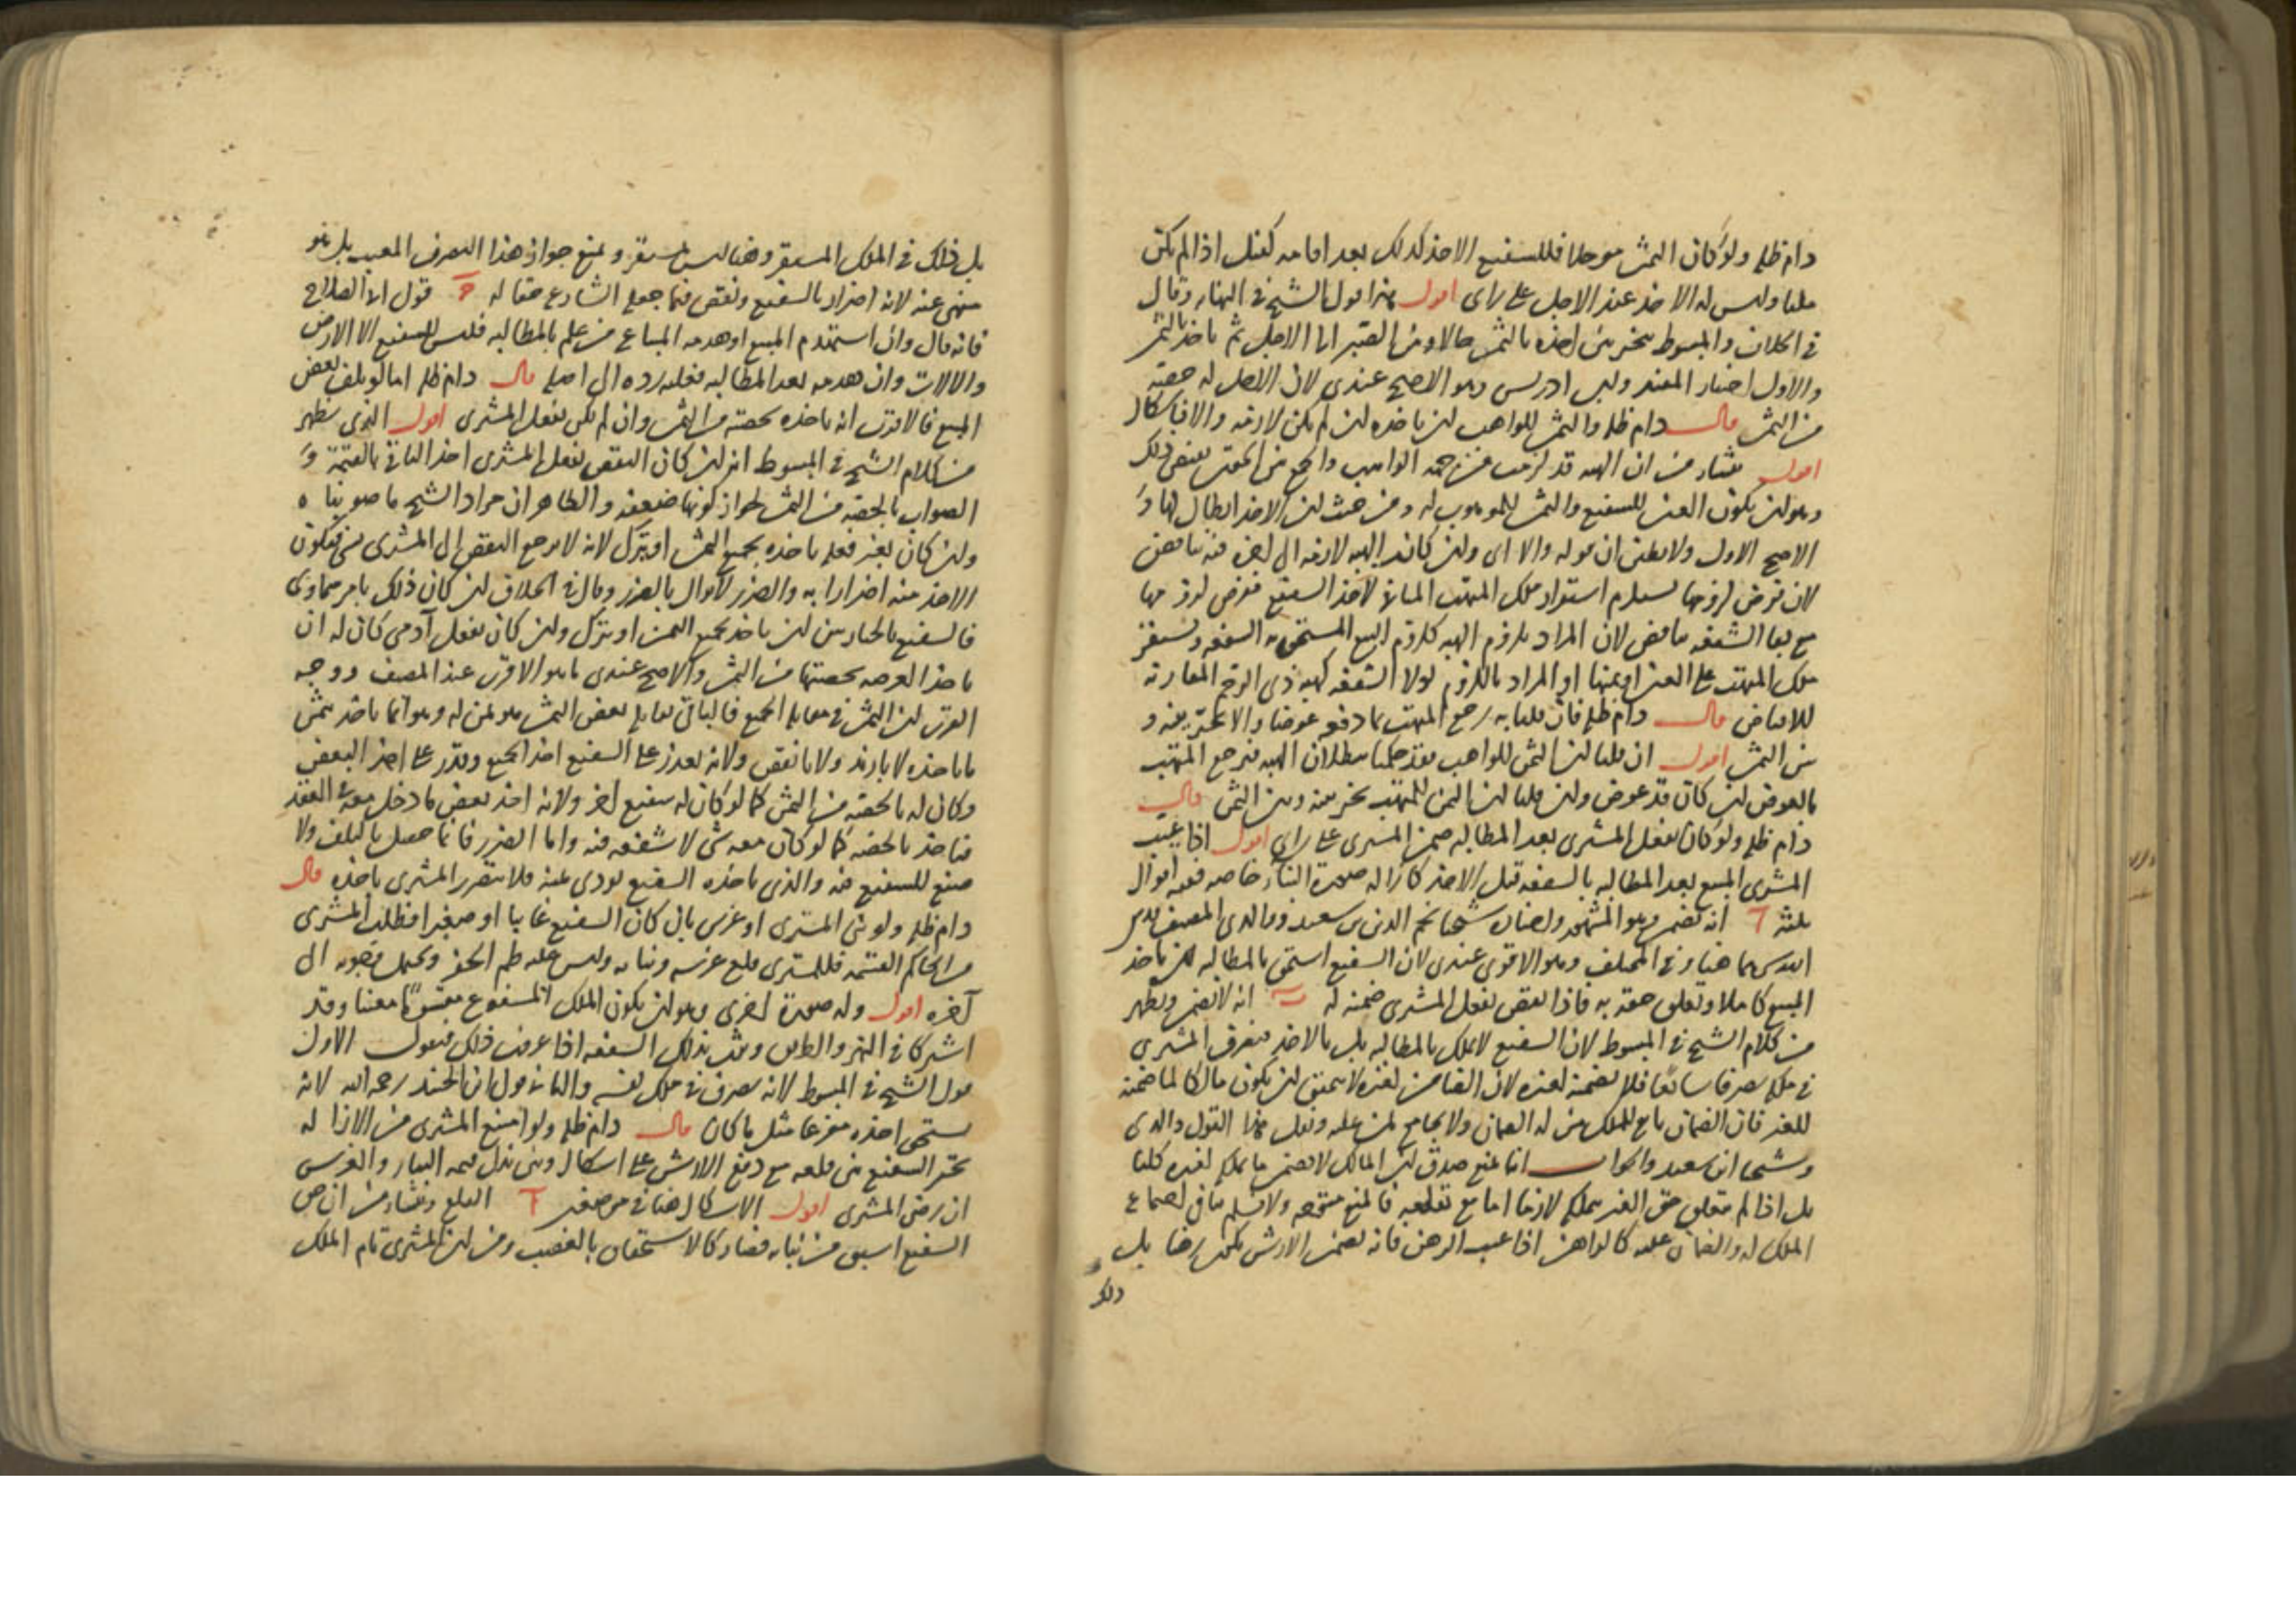 دام ظله ولو كان الثمن مؤجلا فللشفيع الاخذ كذلك بعد اقامة كفيل اذا لم يكن
مليا وليس له الاخذ عند الاجل على راى اقول هذا قول الشيخ في النهاية وقال
في الخلاف والمبسوط يتخير بين اخذه بالثمن حالا وبين الصبر الى الاجل ثم ياخذ بالثمن
والاول اختيار المفيد وابن ادريس وهو الاصح عندى لان الاجل له حصة
من الثمن قال دام ظله والثمن للواهب ان ياخذه ان لم يكن لازمة والا فاشكال
اقول ينشاء من ان الهبة قد لزمت من جهة الواهب والجمع بين الحقين يقتضى ذلك
وهو ان يكون العين للشفيع والثمن للموهوب له ومن حيث ان الاخذ ابطال لها و
الاصح الاول ولا يظن ان قوله والا اى وان كانت الهبة لازمة الى اخره فيه تناقض
لان فرض لزومها يستلزم استقرار ملك المتهب المنافي لاخذ الشفيع ففرض لزومها
مع بقاء الشفعة تناقض لان المراد بلزوم الهبة كلزوم البيع المستحق به الشفعة ويستقر
ملك المتهب على العين او ثمنها او المراد باللزوم لولا الشفعة كهبة ذى الرحم المقارنة
للاقباض قال دام ظله فان قلنا به رجع المتهب بما دفعه عوضا والا تخير بينه و
بين الثمن اقول ان قلنا ان الثمن للواهب فقد حكمنا ببطلان الهبة فيرجع المتهب
بالعوض ان كان قد عوض وان قلنا ان الثمن للمتهب تخير بينه وبين الثمن قال
دام ظله ولو كان بفعل المشترى بعد المطالبة ضمن المشترى على راى اقول اذا عيب
المشترى المبيع بعد المطالبة بالشفعة قبل الاخذ كازالة صورة البناء خاصة ففيه اقوال
ثلثة آ انه يضمن وهو المشهور واختاره شيخنا نجم الدين بن سعيد ووالدى المصنف قدس
الله سرهما هنا وفي المختلف وهو الاقوى عندى لان الشفيع استحق بالمطالبة ان ياخذ
المبيع كاملا وتعلق حقه به فاذا نقص بفعل المشترى ضمنه له ب انه لا يضمن ويظهر
من كلام الشيخ في المبسوط لان الشفيع لا يملك بالمطالبة بل بالاخذ فتصرف المشترى
في ملكه تصرفا سائغا فلا يضمنه لغيره لان الضامن لغيره لا يستحق ان يكون مالكا لما ضمنه
للغير فان الضمان تابع للملك لمن له الضمان ولا يجامع لمن عليه ونقل هذا القول والدى
وشيخنا ابن سعيد والجواب انا نمنع صدق ان المالك لا يضمن ما يملكه لغيره كليا
بل اذا لم يتعلق حق الغير بملكه لازما اما مع تعلقه فالمنع متوجه ولا نسلم تنافي اجتماع
الملك له والضمان عليه كالراهن اذا عيب الرهن فانه يضمن الارش يكون رهنا بل
ذلك
بل ذلك في الملك المستقر وهنا ليس بمستقر ونمنع جواز هذا التصرف المعيب بل هو
منهى عنه لانه اضرار بالشفيع ونقص فيما جعله الشارع حقا له ج قول ابى الصلاح
فانه قال وان استهدم المبيع او هدمه المبتاع من علم بالمطالبة فليس للشفيع الا الارض
والالات وان هدمه بعد المطالبة فعليه رده الى اصله قال دام ظله اما لو تلف بعض
المبيع فالاقرب انه ياخذه بحصته من الثمن وان لم يكن بفعل المشترى اقول الذى يظهر
من كلام الشيخ في المبسوط انه ان كان النقص بفعل المشترى اخذ الباقي بالقيمة و
الصواب بالحصة من الثمن لجواز كونها ضعيفة والظاهر ان مراد الشيخ ما صوبناه
وان كان بغير فعله ياخذه بجميع الثمن او يترك لانه لا يرجع النقص الى المشترى بشئ فيكون
الاخذ منه اضرارا به والضرر لا يزال بالضرر وقال في الخلاف ان كان ذلك بامر سماوى
فالشفيع بالخيار بين ان ياخذ بجميع الثمن او يترك وان كان بفعل آدمى كان له ان
ياخذ العرصة بحصتها من الثمن والاصح عندى ما هو الاقرب عند المصنف ووجه
القرب ان الثمن في مقابلة الجميع فالباقي يقابله بعض الثمن هو ثمن له وهو انما ياخذ بثمن
ما ياخذه لا بازيد ولا بانقص ولانه تعذر على الشفيع اخذ الجميع وقدر على اخذ البعض
وكان له بالحصة من الثمن كما لو كان له شفيع اخر ولانه اخذ بعض ما دخل معه في العقد
فياخذ بالحصة كما لو كان معه شئ لا شفعة فيه واما الضرر فانما حصل بالتلف ولا
صنع للشفيع فيه والذى ياخذه الشفيع يؤدى ثمنه فلا يتضرر المشترى باخذه قال
دام ظله ولو بنى المشترى او غرس بان كان الشفيع غايبا او صغيرا فطلب المشترى
من الحاكم القسمة فللمشترى قلع غرسه وبنائه وليس عليه طم الحفر ويحتمل وجوبه الى
آخره اقول وله صورة اخرى وهو ان يكون الملك المشفوع مقسوما معينا وقد
اشتركا في النهر والطريق ويثبت بذلك الشفعة اذا عرفت ذلك فنقول الاول
قول الشيخ في المبسوط لانه تصرف في ملك نفسه والثانى قول ابن الجنيد رحمه الله لانه
يستحق اخذه مفرغا مثل ما كان قال دام ظله ولو امتنع المشترى من الازالة
تخير الشفيع بين قلعه مع دفع الارش على اشكال وبين بذل قيمة البناء والغرس
ان رضى المشترى اقول الاشكال هنا في موضعين آ القلع وينشاء من ان حق
الشفيع اسبق من بنائه فصار كالاستحقاق بالغصب ومن ان المشترى تام الملك